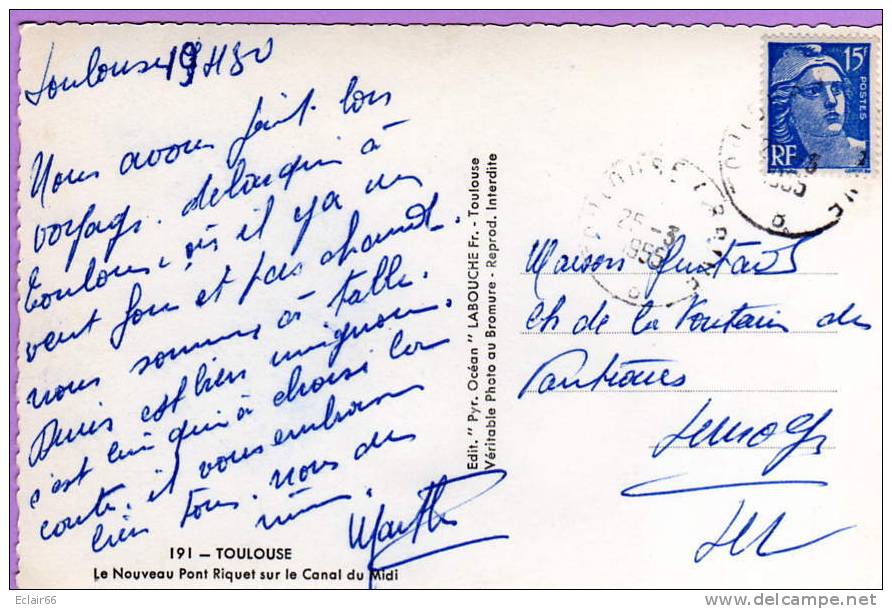 Toulouse 19H30
Nous avons fait bon
voyage. 
Toulouse, où il y a un
vent fou et pas chaud.
nous sommes à table.
Denis est bien mignon.
c'est lui qui a choisi la
carte. il vous embrasse
bien tous. nous de
même.
Marthe
191 — TOULOUSE
Le Nouveau Pont Riquet sur le Canal du Midi
Edit. " Pyr. Océan " LABOUCHE Fr. - Toulouse
Véritable Photo au Bromure - Reprod. Interdite
15F
POSTES
RF
25 - 3
1955
Maison
Ch de la Fontaine des
Limoges
Eclair66
http://www.delcampe.net